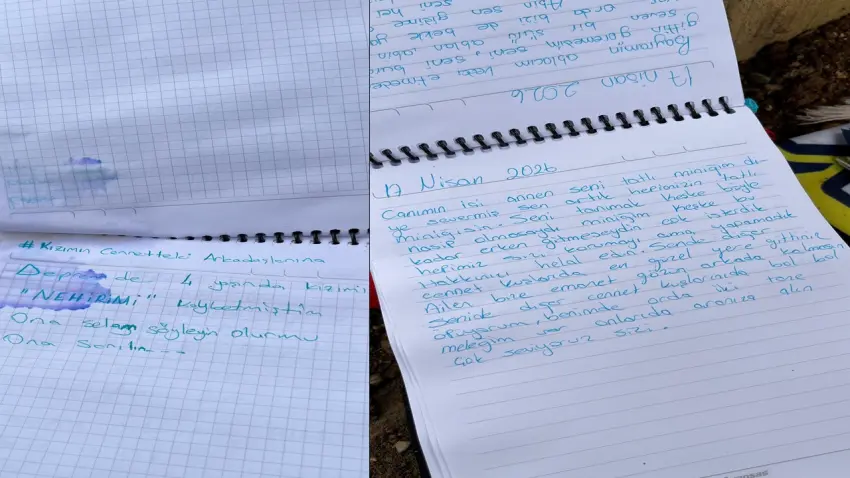 # Kızımın Cennetteki Arkadaşlarına
Deprem de 4 yaşında kızımı
"NEHİRİMİ" kaybetmiştim
Ona selam söyleyin olurmu
Ona sarılın---
17 Nisan 2026
Bayramın ablacım
gittin göremedim seni, seni
seven bir sürü ablan abin
var orda bizi de bekle
Abin seni
17 Nisan 2026
Canımın isi annen seni tatlı miniğim di-
ye severmiş sen artık hepimizin tatlı
miniğisin. Seni tanımak keske böyle
nasip olmasaydı miniğim keske bu
kadar erken gitmeseydin çok isterdik
hepimiz sizi korumayı ama yapamadık
Hakkını helal edin. Sende diğer
cennet kuslarıda en güzel yere gittiniz
Ailen bize emanet gözün arkada kalmasın
Senide diğer cennet kuslarınıda bol bol
öpüyorum, benimde orda iki tane
meleğim var onlarıda aranıza alın
Çok seviyoruz sizi.